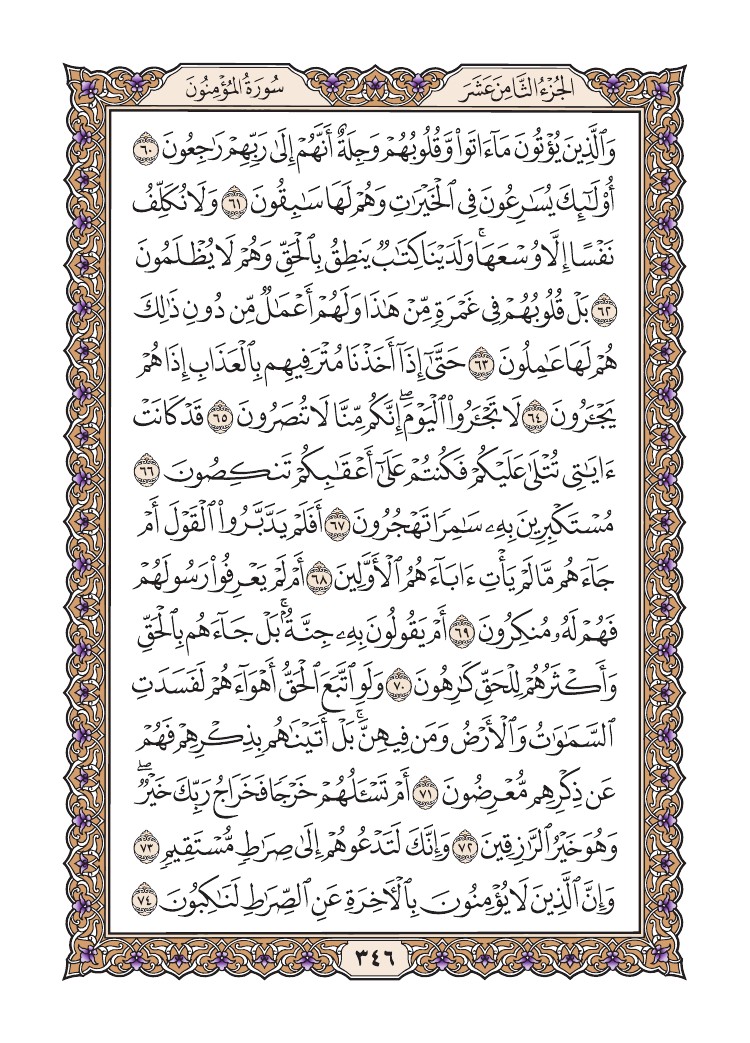 الجُزْءُ الثَّامِنَ عَشَرَ
سُورَةُ المُؤْمِنُونَ
وَٱلَّذِينَ يُؤْتُونَ مَآ ءَاتَوا۟ وَّقُلُوبُهُمْ وَجِلَةٌ أَنَّهُمْ إِلَىٰ رَبِّهِمْ رَٰجِعُونَ ٦٠
أُو۟لَٰٓئِكَ يُسَٰرِعُونَ فِى ٱلْخَيْرَٰتِ وَهُمْ لَهَا سَٰبِقُونَ ٦١ وَلَا نُكَلِّفُ
نَفْسًا إِلَّا وُسْعَهَا ۚ وَلَدَيْنَا كِتَٰبٌ يَنطِقُ بِٱلْحَقِّ وَهُمْ لَا يُظْلَمُونَ
٦٢ بَلْ قُلُوبُهُمْ فِى غَمْرَةٍ مِّنْ هَٰذَا وَلَهُمْ أَعْمَٰلٌ مِّن دُونِ ذَٰلِكَ
هُمْ لَهَا عَٰمِلُونَ ٦٣ حَتَّىٰٓ إِذَآ أَخَذْنَا مُتْرَفِيهِم بِٱلْعَذَابِ إِذَا هُمْ
يَجْـَٔرُونَ ٦٤ لَا تَجْـَٔرُوا۟ ٱلْيَوْمَ ۖ إِنَّكُم مِّنَّا لَا تُنصَرُونَ ٦٥ قَدْ كَانَتْ
ءَايَٰتِى تُتْلَىٰ عَلَيْكُمْ فَكُنتُمْ عَلَىٰٓ أَعْقَٰبِكُمْ تَنكِصُونَ ٦٦
مُسْتَكْبِرِينَ بِهِۦ سَٰمِرًا تَهْجُرُونَ ٦٧ أَفَلَمْ يَدَّبَّرُوا۟ ٱلْقَوْلَ أَمْ
جَآءَهُم مَّا لَمْ يَأْتِ ءَابَآءَهُمُ ٱلْأَوَّلِينَ ٦٨ أَمْ لَمْ يَعْرِفُوا۟ رَسُولَهُمْ
فَهُمْ لَهُۥ مُنكِرُونَ ٦٩ أَمْ يَقُولُونَ بِهِۦ جِنَّةٌۢ ۚ بَلْ جَآءَهُم بِٱلْحَقِّ
وَأَكْثَرُهُمْ لِلْحَقِّ كَٰرِهُونَ ٧٠ وَلَوِ ٱتَّبَعَ ٱلْحَقُّ أَهْوَآءَهُمْ لَفَسَدَتِ
ٱلسَّمَٰوَٰتُ وَٱلْأَرْضُ وَمَن فِيهِنَّ ۚ بَلْ أَتَيْنَٰهُم بِذِكْرِهِمْ فَهُمْ
عَن ذِكْرِهِم مُّعْرِضُونَ ٧١ أَمْ تَسْـَٔلُهُمْ خَرْجًا فَخَرَاجُ رَبِّكَ خَيْرٌ ۖ
وَهُوَ خَيْرُ ٱلرَّٰزِقِينَ ٧٢ وَإِنَّكَ لَتَدْعُوهُمْ إِلَىٰ صِرَٰطٍ مُّسْتَقِيمٍ ٧٣
وَإِنَّ ٱلَّذِينَ لَا يُؤْمِنُونَ بِٱلْءَاخِرَةِ عَنِ ٱلصِّرَٰطِ لَنَٰكِبُونَ ٧٤
٣٤٦